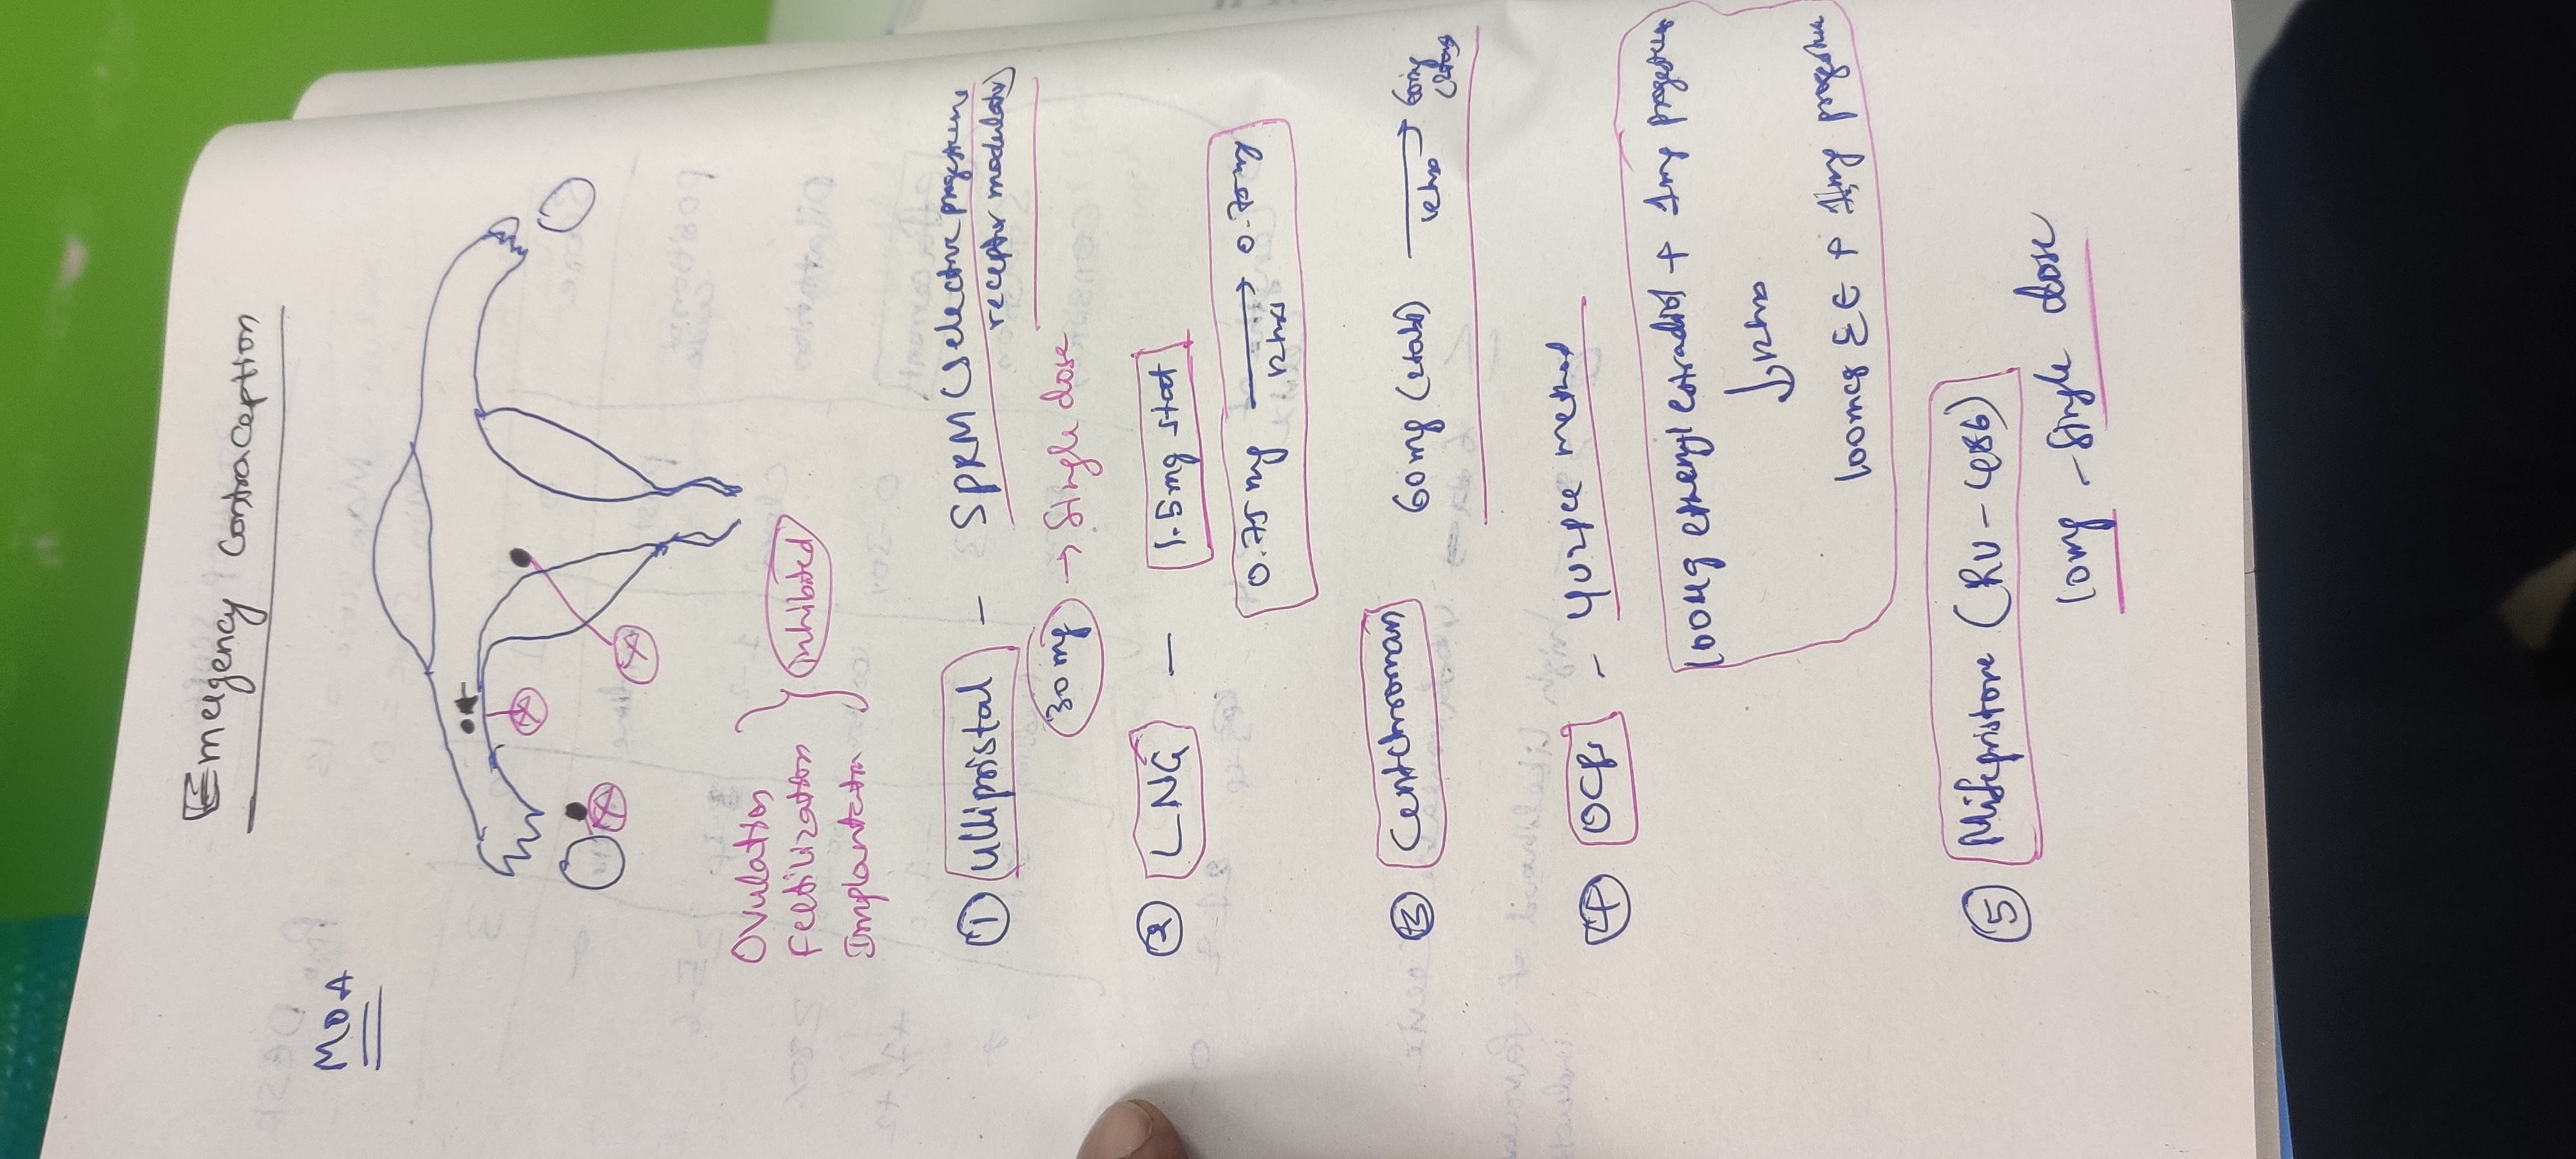 Emergency Contraception
MOA
Ovulation
Fertilization
Implantation
Inhibited
① Ullipristal - SPRM (Selective progesterone
receptor modulator)
30mg → Single dose
② LNG - 1.5mg stat
0.75mg → 0.75mg
12hrs
③ Centchroman 60mg (stat) → 60mg
④ OCPs - Yuzpe method
100µg ethenyl estradiol + 1mg progesterone
100mcg EE + 1mg progesterone
⑤ Mifepristone (RU-486)
10mg - Single dose